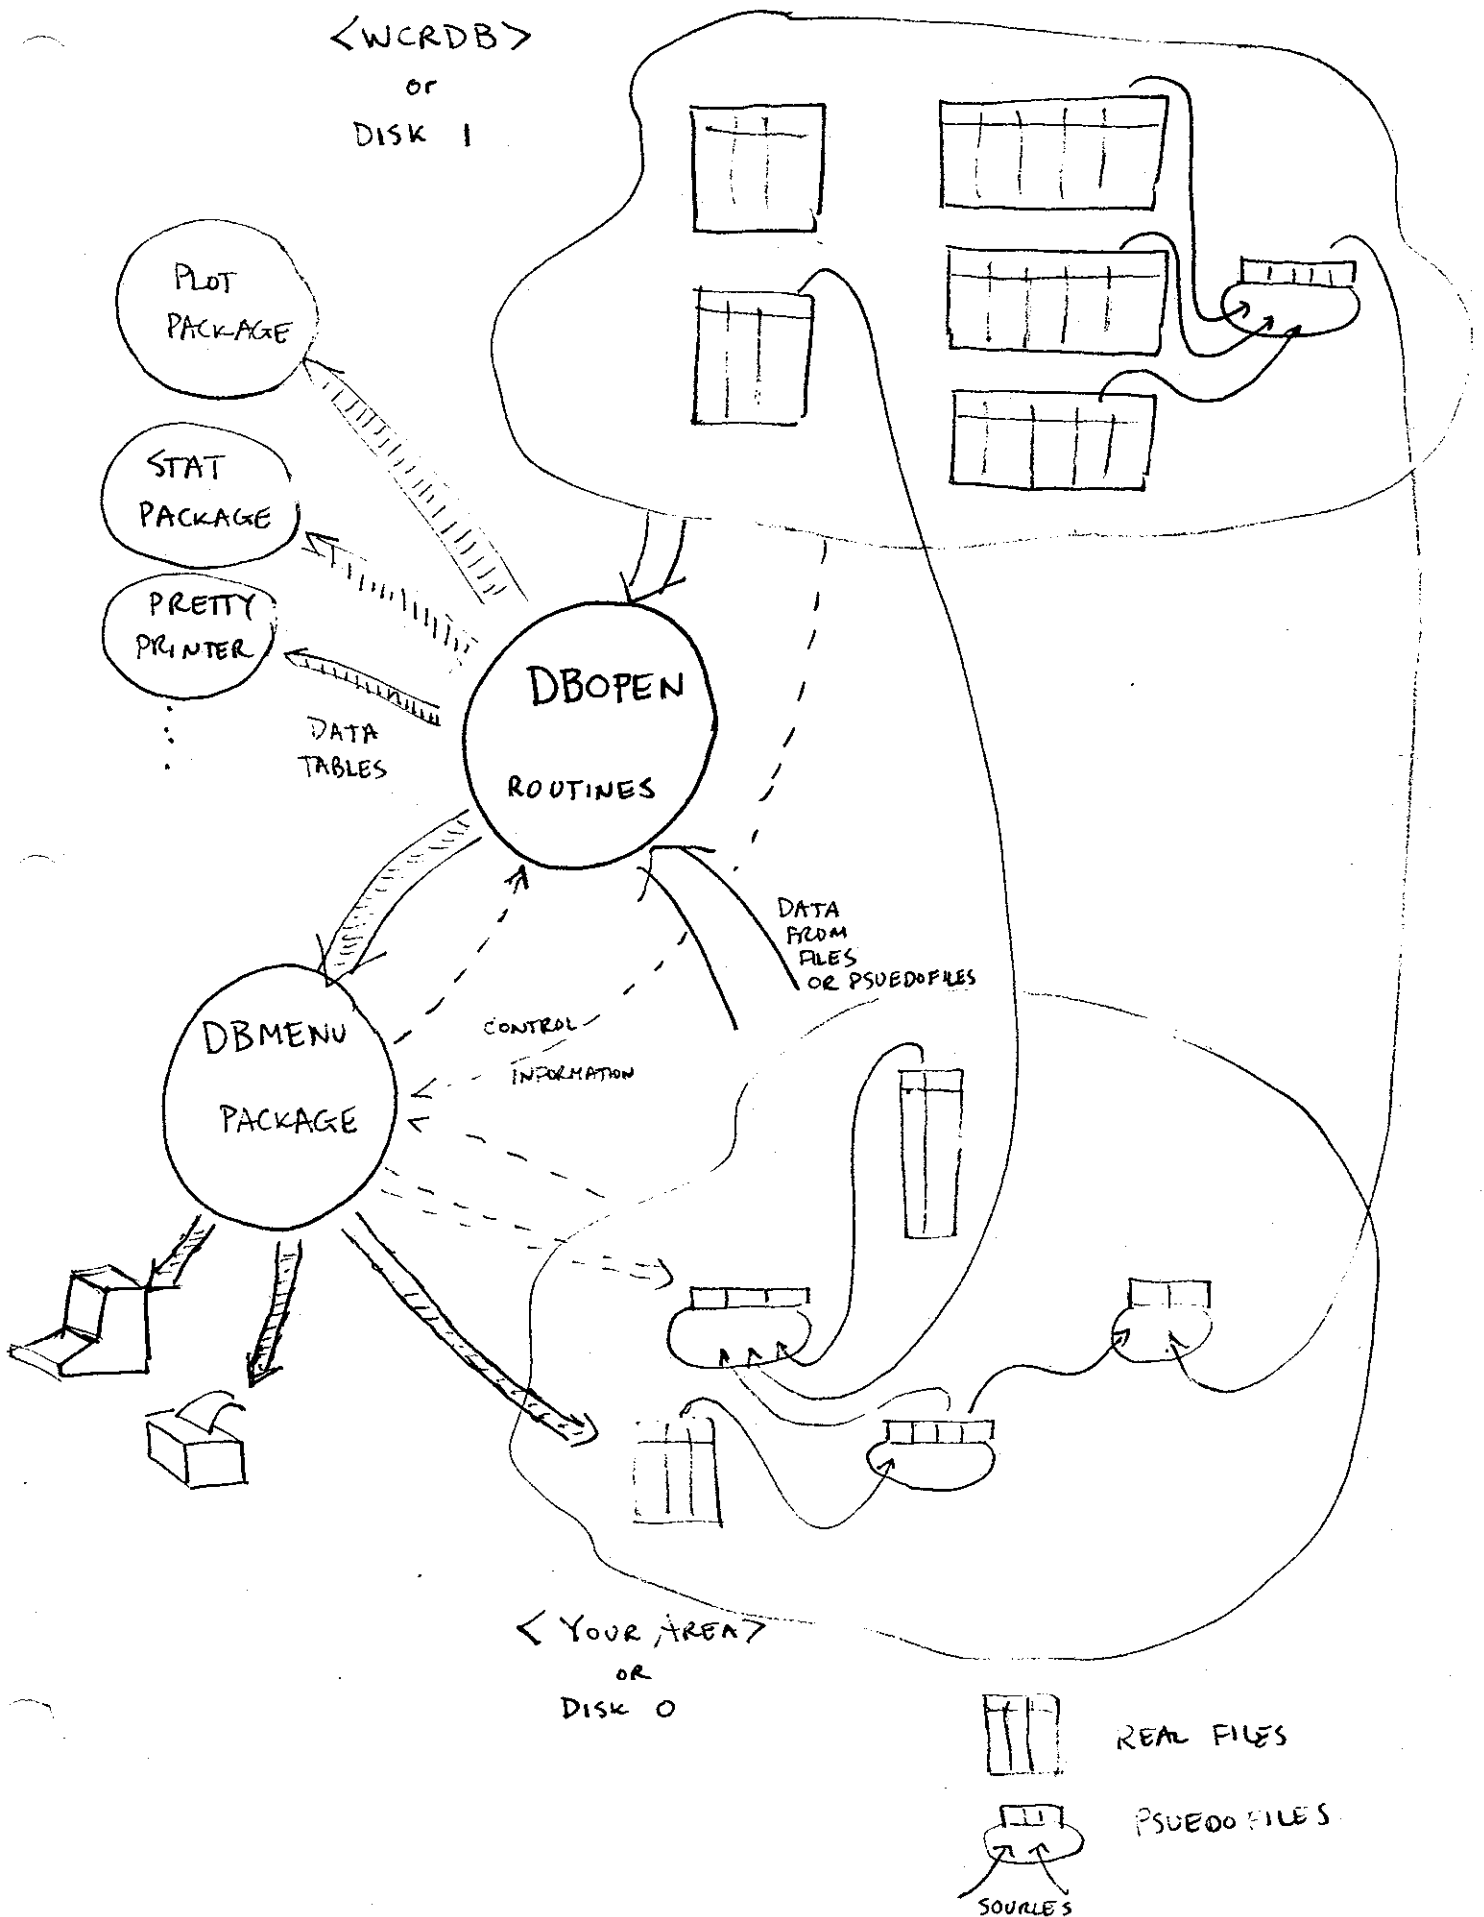 <WCRDB>
or
DISK 1
PLOT
PACKAGE
STAT
PACKAGE
PRETTY
PRINTER
DATA
TABLES
DBOPEN
ROUTINES
DATA
FROM
FILES
OR PSUEDOFILES
CONTROL
INFORMATION
DBMENU
PACKAGE
<YOUR AREA>
OR
DISK 0
REAL FILES
PSUEDOFILES
SOURCES